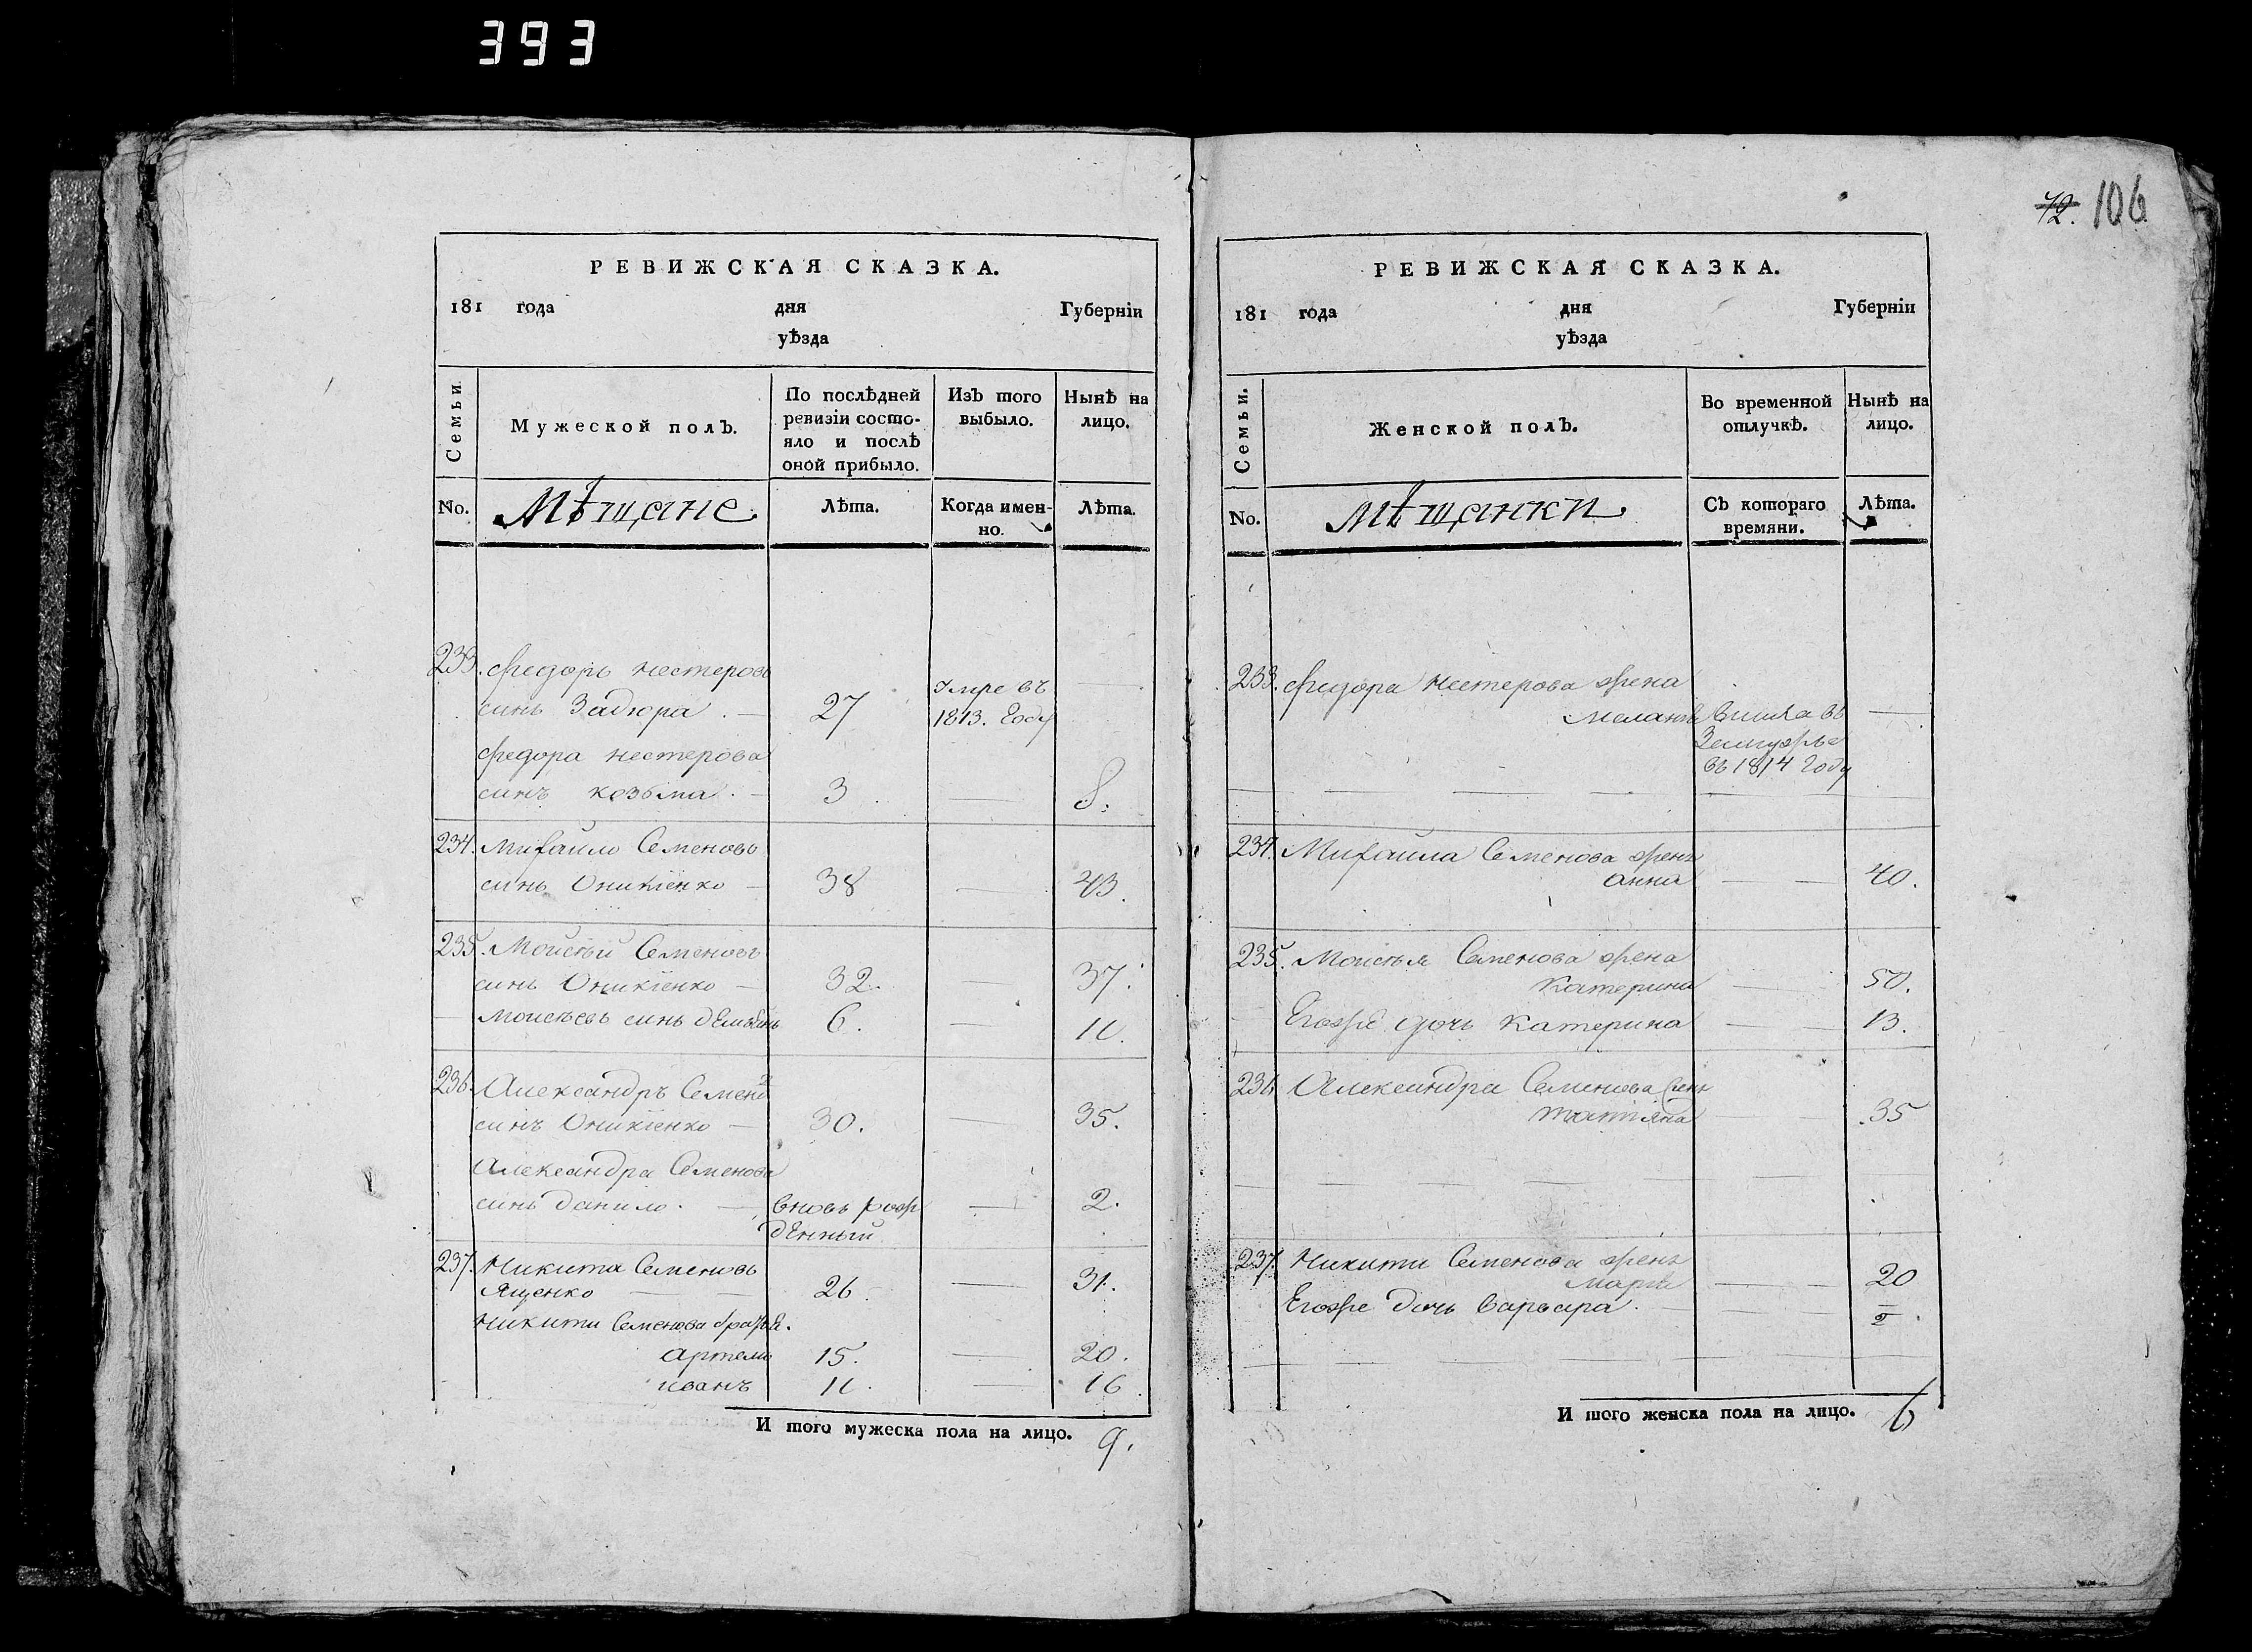 393
72. 106
РЕВИЖСКАЯ СКАЗКА.
181 года дня Губерніи
уѣзда
Семьи.
Мужеской полъ.
По послѣдней ревизіи состо-
яло и послѣ оной прибыло.
Изъ того выбыло.
Нынѣ на лицо.
No.
Мѣщане
Лѣта.
Когда имен-
но.
Лѣта.
233. Федоръ Нестеровъ
синъ Задюра. — 27 Умре въ
1813. Году —
Федора Нестерова
синъ Козьма. — 3 — 8.
234. Михайло Семеновъ
синъ Оникіенко — 38 — 43.
235. Мойсѣй Семеновъ
синъ Оникіенко — 32. — 37.
Мойсѣевъ синъ Демьянъ 6. — 11.
236. Александръ Семено
синъ Оникіенко — 30. — 35.
Александра Семенова
синъ Данило. — вновь рож
денный — 2.
237. Никита Семеновъ
Ященко — 26. — 31.
Никити Семенова братья.
Артемъ 15. — 20.
Иванъ 11. — 16.
И того мужеска пола на лицо. 9.
РЕВИЖСКАЯ СКАЗКА.
181 года дня Губерніи
уѣзда
Семьи.
Женской полъ.
Во временной отлучкѣ.
Нынѣ на лицо.
No.
Мѣщанки
Съ котораго времяни.
Лѣта.
233. Федора Нестерова жена
Меланія вишла въ —
Замужье
въ 1814 Году
234. Михайла Семенова жена
Анна — 40.
235. Мойсѣя Семенова жена
Катерина — 50.
Егоже дочь Катерина — 13.
236. Александра Семенова жена
Татіяна — 35
237. Никити Семенова жена
Марія — 20
Егоже дочь Варвара. — 2.
И того женска пола на лицо. 6